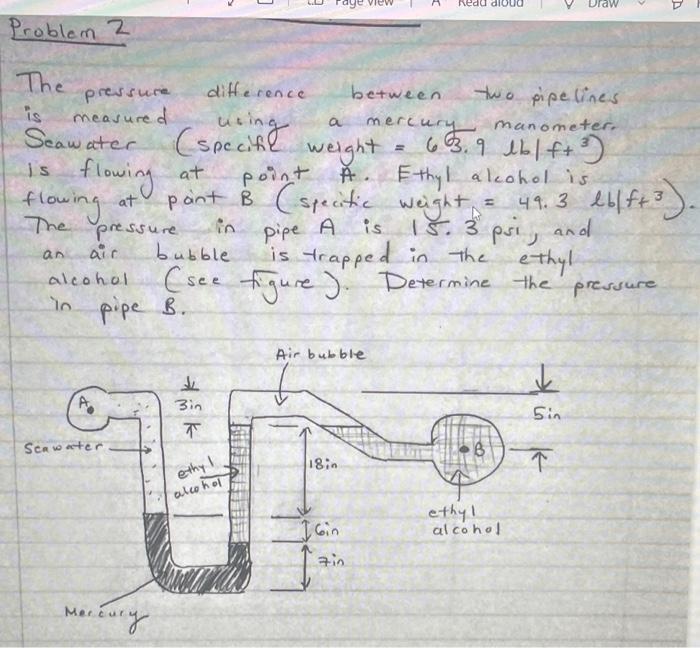 Page view
A
Read aloud
Draw
Problem 2
The pressure difference between two pipelines
is measured using a mercury manometer.
Seawater (specific weight = 63.9 lb/ft³)
is flowing at point A. Ethyl alcohol is
flowing at point B (specific weight = 49.3 lb/ft³).
The pressure in pipe A is 15.3 psi, and
an air bubble is trapped in the ethyl
alcohol (see figure). Determine the pressure
in pipe B.
Air bubble
A
3in
5in
Seawater
ethyl
alcohol
18in
B
ethyl
alcohol
6in
7in
Mercury